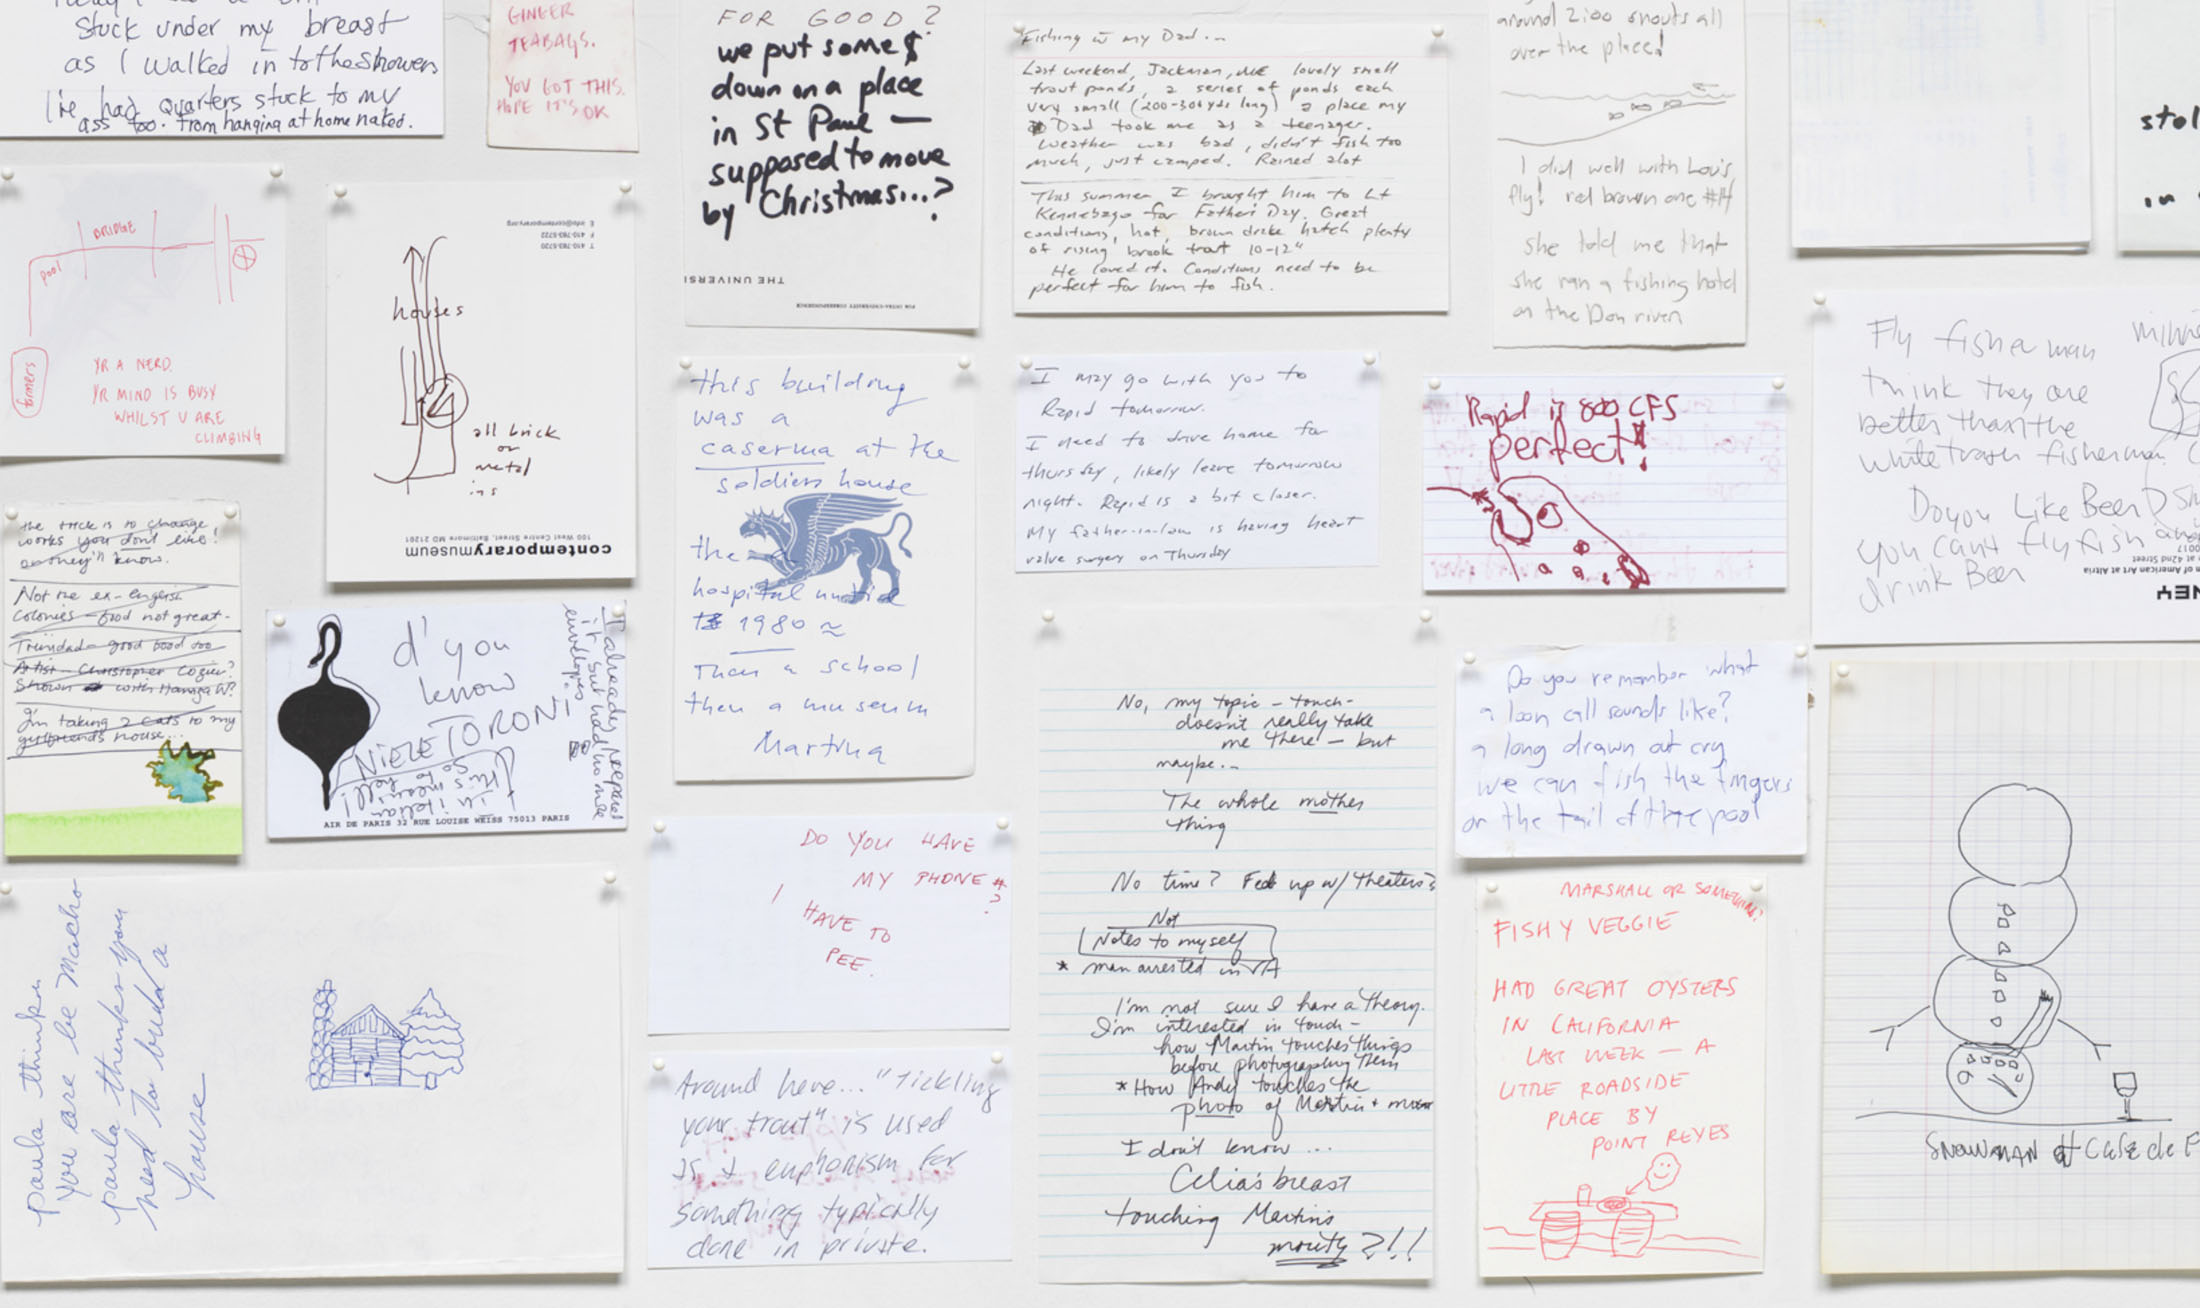 Stuck under my breast
as I walked in to the showers
I've had quarters stuck to my
ass too. from hanging at home naked.
GINGER
TEABAGS.
YOU GOT THIS.
HOPE IT'S OK
FOR GOOD?
we put some $
down on a place
in St Paul —
supposed to move
by Christmas...?
THE UNIVERSI
FOR INTRA-UNIVERSITY CORRESPONDENCE
Fishing w my Dad...
Last weekend, Jackman, ME lovely small
trout ponds, a series of ponds each
very small (200-300 yds long) a place my
Dad took me as a teenager.
Weather was bad, didn't fish too
much, just camped. Rained alot
This summer I brought him to Lt
Kennebago for Father's Day. Great
conditions, hot, brown drake hatch plenty
of rising brook trout 10-12"
He loved it. Conditions need to be
perfect for him to fish.
around 2:00 snouts all
over the place!
I did well with Lou's
fly! red brown one #14
she told me that
she ran a fishing hotel
on the Don river
stol
in
BRIDGE
pool
farmers
YR A NERD.
YR MIND IS BUSY
WHILST U ARE
CLIMBING
E info@contemporary.org
F 410-783-5722
T 410-783-5720
houses
all brick
or
metal
ins
100 West Centre Street, Baltimore MD 21201
contemporarymuseum
this building
was a
caserma at the
soldiers house
the
hospital until
1980 ≈
Then a school
then a museum
Martina
I may go with you to
Rapid tomorrow.
I need to drive home for
thursday, likely leave tomorrow
night. Rapid is a bit closer.
My father-in-law is having heart
valve surgery on Thursday
Rapid is 800 CFS
perfect!
Fly fisherman
think they are
better than the
white trash fisherman
Do you Like Beer?
you can't fly fish and
drink Beer
at 42nd Street
of American Art at Altria
NEY
the trick is to change
works you don't like!
or they'll know.
Not the ex-english
Colonies - food not great -
Trinidad - good food too
Artist - Christopher Cozier?
Shown with Hamza W?
I'm taking 2 cats to my
girlfriends house...
d'you
know
NIELE TORONI
this means
go to hell!
in italian
I already prepared
it, but had no more
envelopes.
AIR DE PARIS 32 RUE LOUISE WEISS 75013 PARIS
No, my topic - touch -
doesn't really take
me there — but
maybe...
The whole mother
thing
No time? Fed up w/ theaters?
Not
Notes to myself
* man arrested in VA
I'm not sure I have a theory.
I'm interested in touch -
how Martin touches things
before photographing them
* How Andy touches the
photo of Martin +
I don't know ...
Celia's breast
touching Martin's
mouth?!!
Do you remember what
a loon call sounds like?
a long drawn out cry
we can fish the fingers
on the tail of the pool
DO YOU HAVE
MY PHONE #
?
I HAVE TO
PEE.
paula thinks
you are be Macho
paula thenks you
need to build a
house
Around here... "Tickling
your trout" is used
as a euphorism for
something typically
done in private.
MARSHALL OR SOMETHING?
FISHY VEGGIE
HAD GREAT OYSTERS
IN CALIFORNIA
LAST WEEK — A
LITTLE ROADSIDE
PLACE BY
POINT REYES
SNOWMAN at Cafe de F